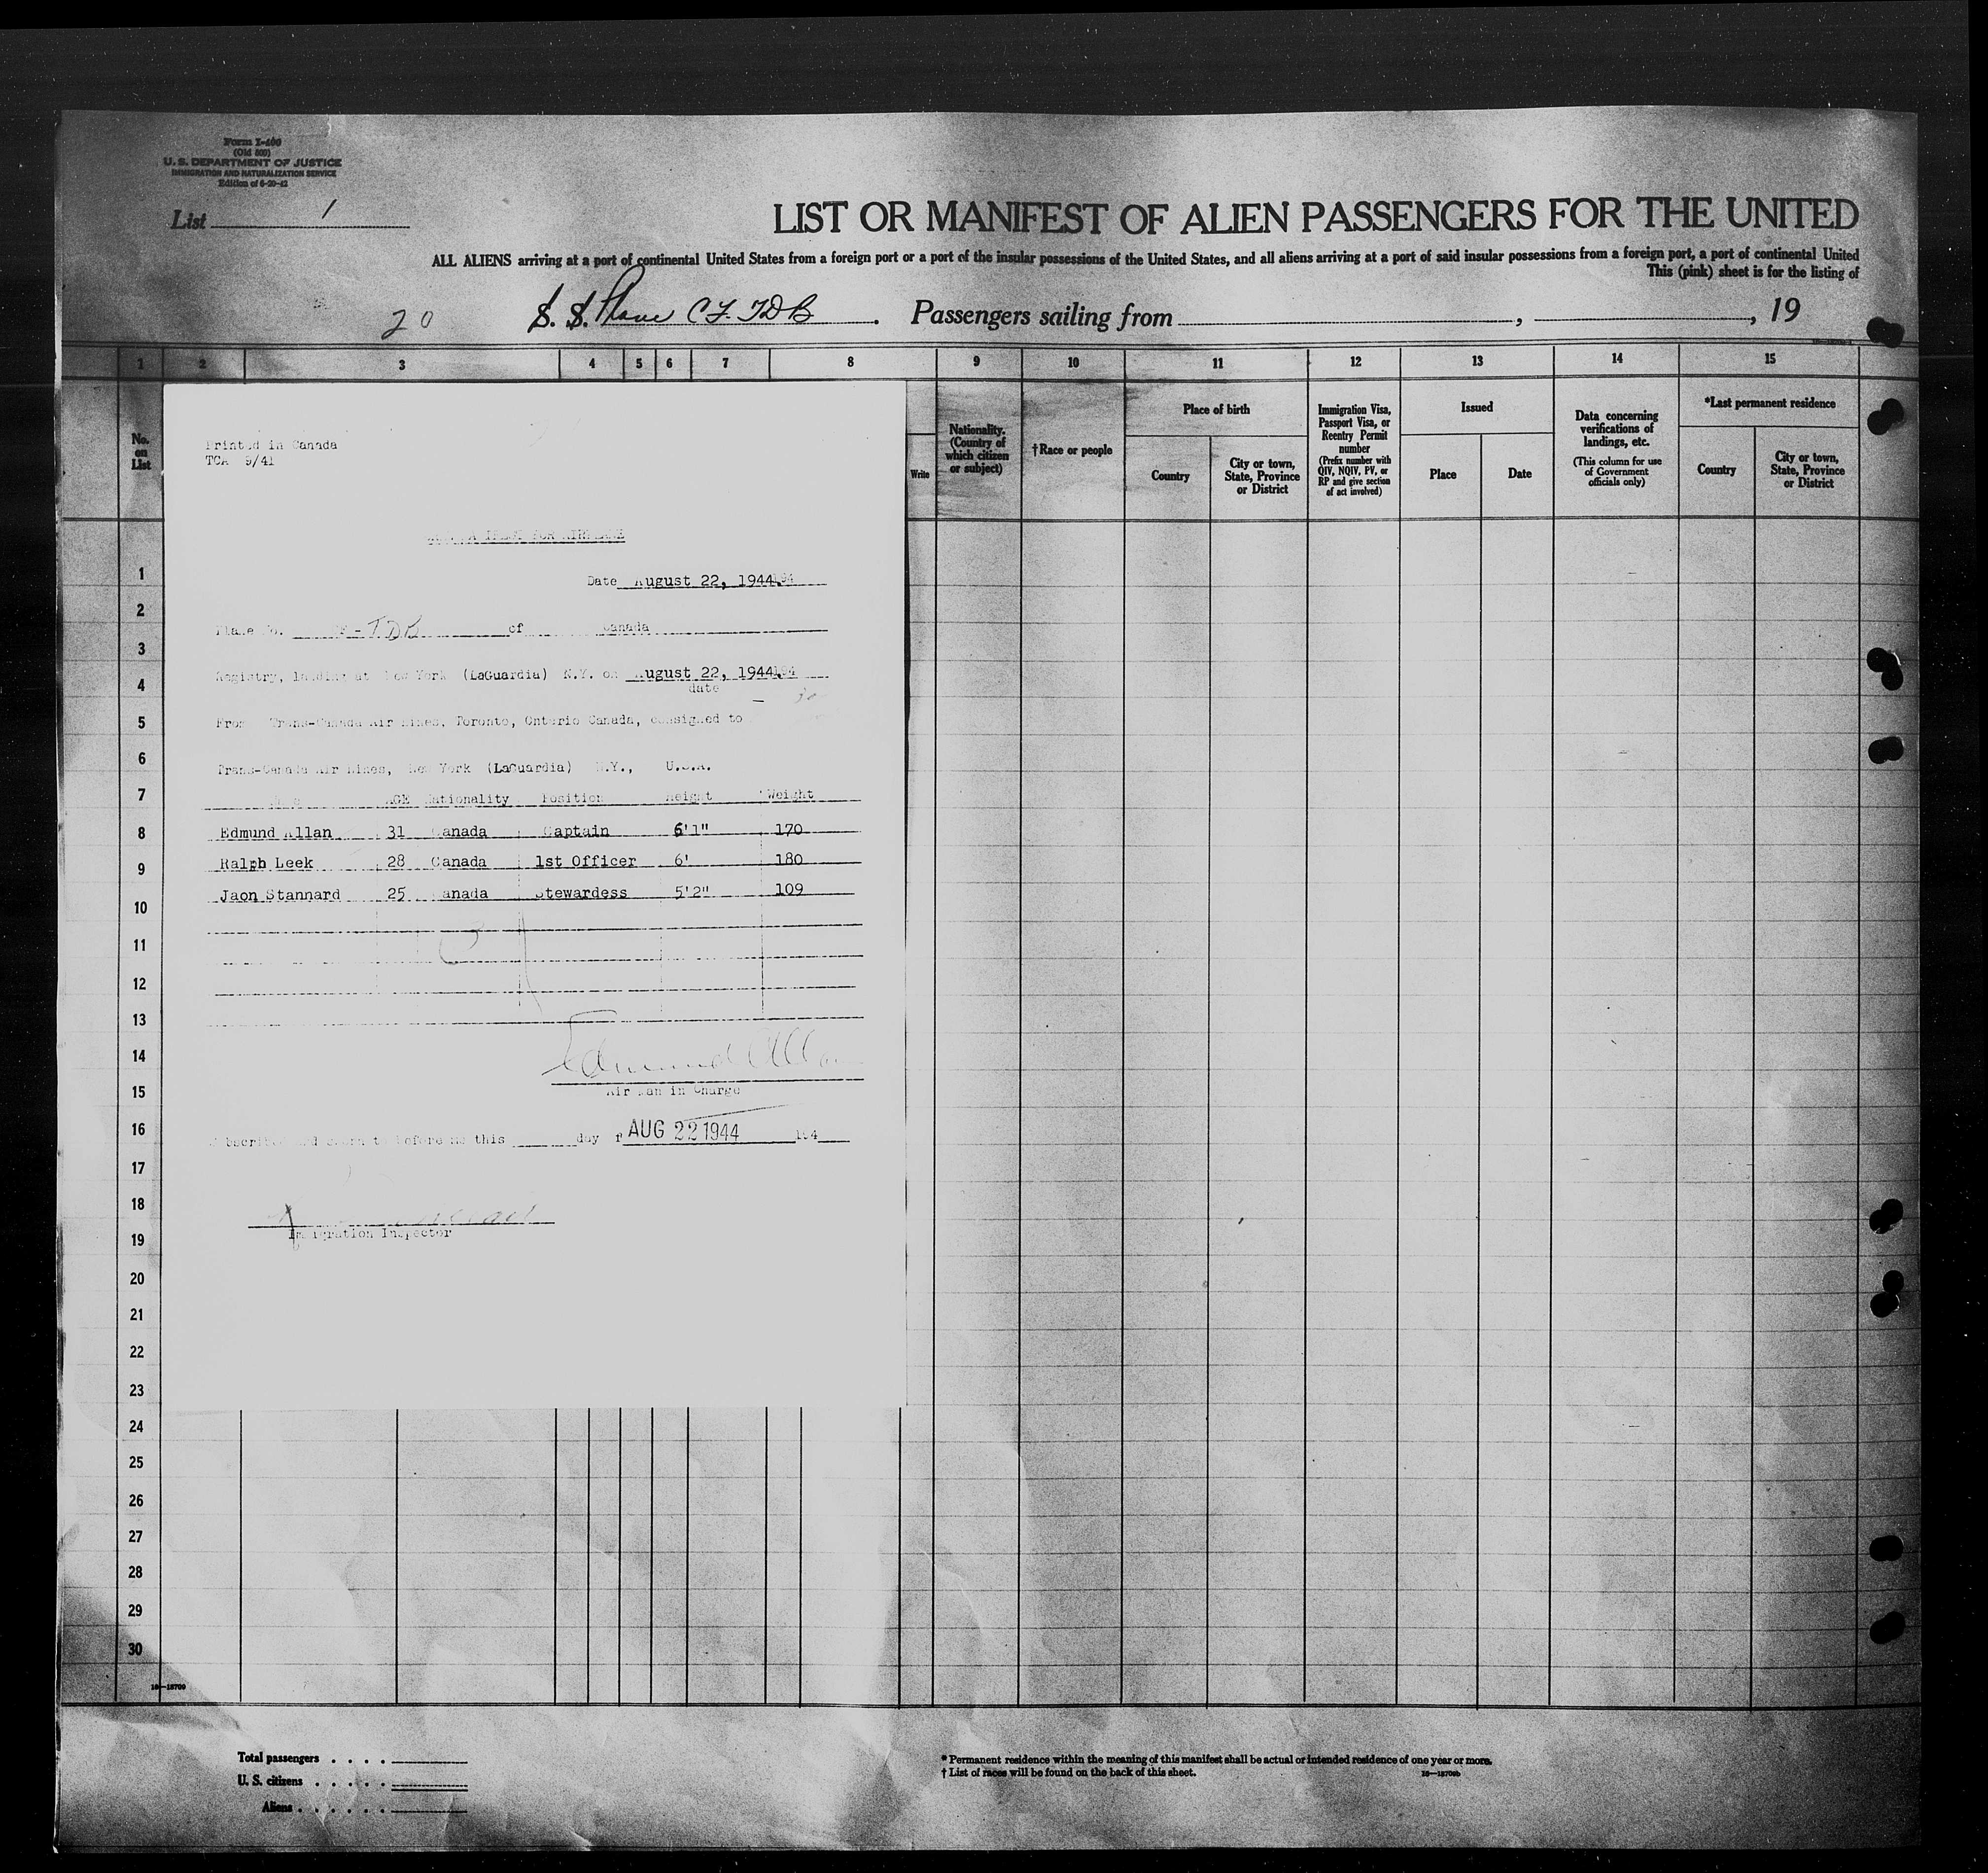 Form I-400
(Old 500)
U. S. DEPARTMENT OF JUSTICE
IMMIGRATION AND NATURALIZATION SERVICE
Edition of 6-20-42
List 1
LIST OR MANIFEST OF ALIEN PASSENGERS FOR THE UNITED
ALL ALIENS arriving at a port of continental United States from a foreign port or a port of the insular possessions of the United States, and all aliens arriving at a port of said insular possessions from a foreign port, a port of continental United
This (pink) sheet is for the listing of
20 S. S. Plane CF. TDB. Passengers sailing from , , 19
1 2 3 4 5 6 7 8 9 10 11 12 13 14 15
No. on List
Write
Nationality. (Country of which citizen or subject)
†Race or people
Place of birth
Country
City or town, State, Province or District
Immigration Visa, Passport Visa, or Reentry Permit number
(Prefix number with QIV, NQIV, PV, or RP and give section of act involved)
Issued
Place
Date
Data concerning verifications of landings, etc.
(This column for use of Government officials only)
*Last permanent residence
Country
City or town, State, Province or District
Printed in Canada
TCA 9/41
FOR AIRPLANE
Date August 22, 1944. 194
Plane No. CF-TDB of Canada
Registry, landing at New York (LaGuardia) N.Y. on August 22, 1944. 194
date
From Trans-Canada Air Lines, Toronto, Ontario Canada, consigned to
Trans-Canada Air Lines, New York (LaGuardia) N.Y., U.S.A.
Name AGE Nationality Position Height Weight
Edmund Allan 31 Canada Captain 6'1" 170
Ralph Leek 28 Canada 1st Officer 6' 180
Jaon Stannard 25 Canada Stewardess 5'2" 109
Edmund Allan
Air Man in Charge
Subscribed and sworn to before me this day of AUG 22 1944 194
Immigration Inspector
1
2
3
4
5
6
7
8
9
10
11
12
13
14
15
16
17
18
19
20
21
22
23
24
25
26
27
28
29
30
16—18709
Total passengers . . . .
U. S. citizens . . . . .
Aliens . . . . . .
* Permanent residence within the meaning of this manifest shall be actual or intended residence of one year or more.
† List of races will be found on the back of this sheet.
16—18709b